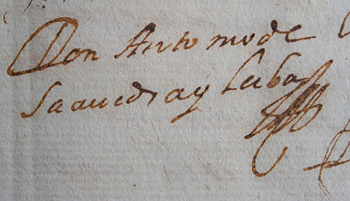 Don Antonio de
Saauedra y Leiba